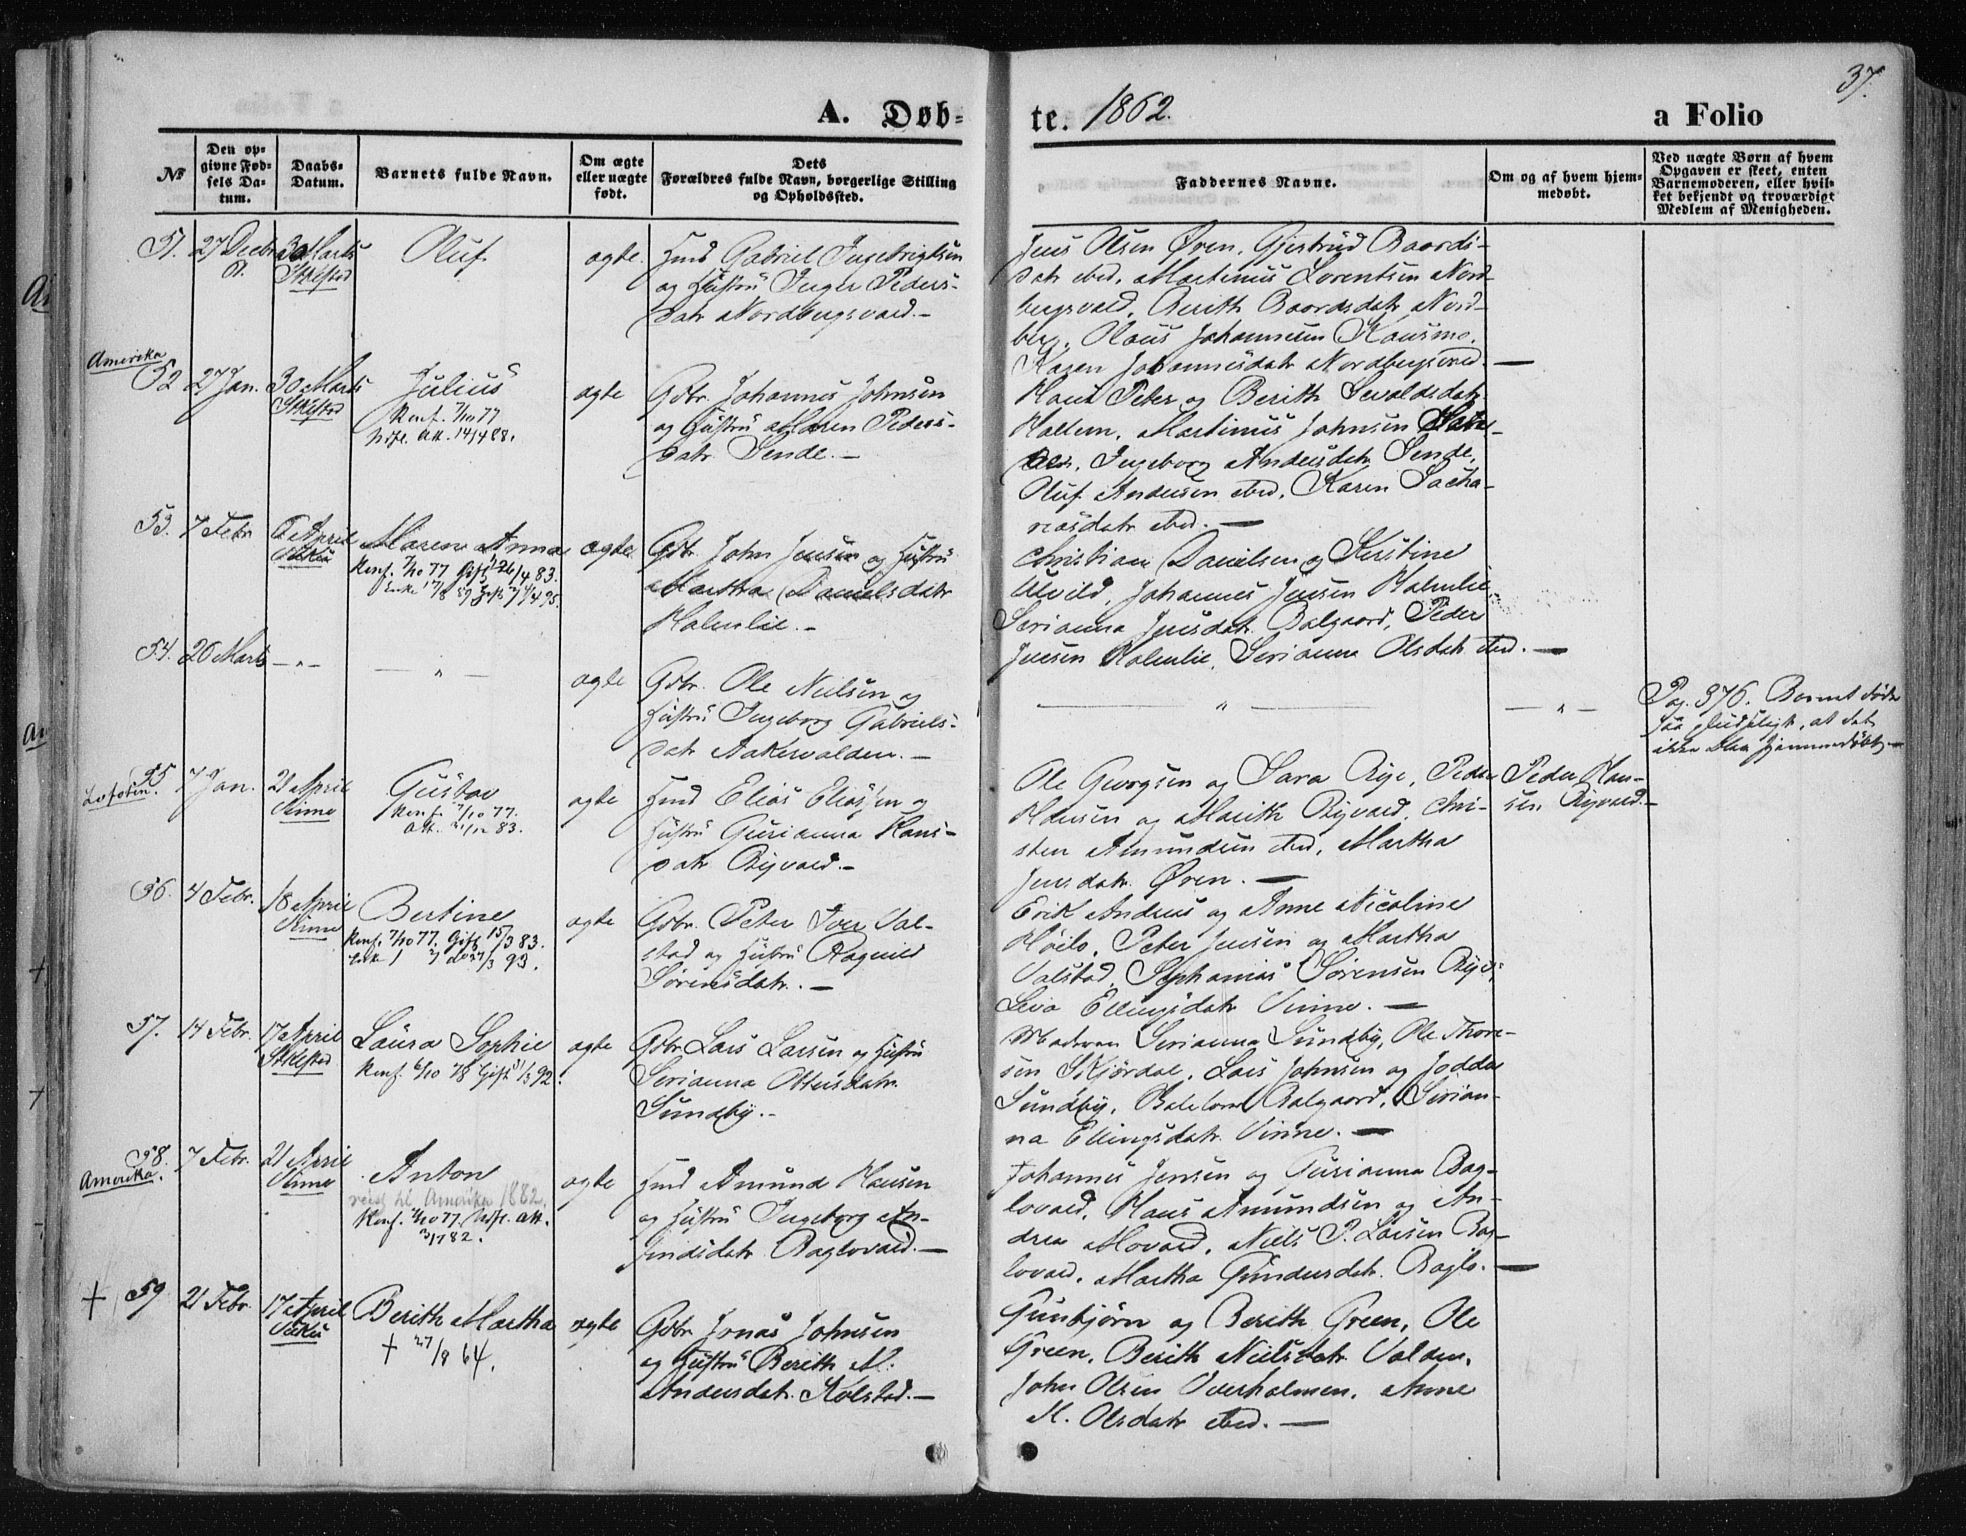 37.
A. Døb- te. 1862. a Folio
№
Den op-
givne Fød-
sels Da-
tum.
Daabs-
Datum.
Barnets fulde Navn.
Om ægte
eller uægte
født.
Dets
Forældres fulde Navn, borgerlige Stilling
og Opholdssted.
Faddernes Navne.
Om og af hvem hjem-
medøbt.
Ved uægte Børn af hvem
Opgaven er skeet, enten
Barnemoderen, eller hvil-
ket bekjendt og troværdigt
Medlem af Menigheden.
51. 27 Decbr 30 Marts
Stiklestad
Oluf
ægte.
Husmd Gabriel Ingebrigtsen
og Hustru Inger Peders-
datr Nordbergsvald.-
Jens Olsen Øren, Gjertrud Baards-
datr ibid, Martinus Lorentsen Nord-
bergsvald, Berith Baardsdatr Nord-
berg, Olaus Johannesen Hausmo,
Karen Johannesdatr Nordbergsvald.-
Amerika
52 27 Jan. 30 Marts
Stiklestad
Julius
Konf. 7/10 77
Utfl. Att. 14/4 88.
ægte
Gbr. Johannes Johnsen
og Hustru Maren Peders-
datr Sende.-
Hans Peter og Berith Sevaldsdatr
Hallem, Martinus Johnsen
Ingeborg Andersdatr Sende,
Oluf Andersen ibid, Karen Sacha-
riasdatr ibid.-
53. 7 Febr. 6 April
Vuku
Maren Anna
Konf. 7/10 77 Gift 26/4 83.
Enke
ægte
Gbr. John Jensen og Hustru
Martha Danielsdatr
Holmlie.-
Christian Danielsen og Kirstine
Ulvild, Johannes Jensen Holmlie,
Serianna Jensdatr Balgaard, Peder
Jensen Holmlie, Serianna Olsdatr ibid.-
54. 20 Marts -"- -"-
ægte
Gbr. Ole Nielsen og
Hustru Ingeborg Gabriels-
datr Aakervolden.-
" -"-
Pag. 376. Barnet født
saa at det
ikke blev hjemmedøbt.-
Lofoten.
55 7 Jan. 21 April
Vinne
Gustav
Konf. 7/10 77.
Att. 21/12 83.
ægte
Husmd Elias Eliassen og
Hustru Gurianna Hans-
datr Byvald.-
Ole Georgsen og Sara Bye, Peder
Hansen og Marith Byvald, Chri-
sten Amundsen ibid, Martha
Jensdatr Øren.-
Peder Han-
sen Byvald.-
56. 4 Febr. 18 April
Vinne
Bertine
Konf. 7/10 77. Gift 15/3 83.
ægte
Gbr. Peter Iver Val-
stad og Hustru Ragnild
Sørensdatr.-
Erik Andreas og Anne Nicoline
Høilo, Peter Jensen og Martha
Valstad, Stephanias Sørensen Bye,
Sara Ellingsdatr Vinne.-
57. 14 Febr. 17 April
Stiklestad
Laura Sophie
Konf. 6/10 78 Gift 31/3 92.
ægte
Gbr. Lars Larsen og Hustru
Serianna Ottersdatr
Sundby.-
Madam Serianna Sundby, Ole Thore-
sen Skjørdal, Lars Johnsen og Jodda
Sundby, Balgaard, Serian-
na Ellingsdatr Vinne.-
Amerika.
58. 7 Febr. 21 April
Vinne
Anton
reist til Amerika 1882
Konf. 7/10 77. Utfl. Att.
3/7 82.
ægte
Husmd Amund Hansen
og Hustru Ingeborg An-
findsdatr Baglovald.-
Johannes Jensen og Gurianna Bag-
lovald, Hans Amundsen og An-
drea Movald, Niels P. Larsen Bag-
lovald, Martha Gundersdatr Baglo.-
+ 59 21 Febr. 17 April
Vuku
Berith Martha
+ 27/8 64.
ægte
Gbr. Jonas Johnsen
og Hustru Berith M.
Andersdatr Kolstad.-
Gunbjørn og Berith Green, Ole
Green, Berith Nielsdatr Volden,
John Olsen Overholmen, Anne
M. Olsdatr ibid.-